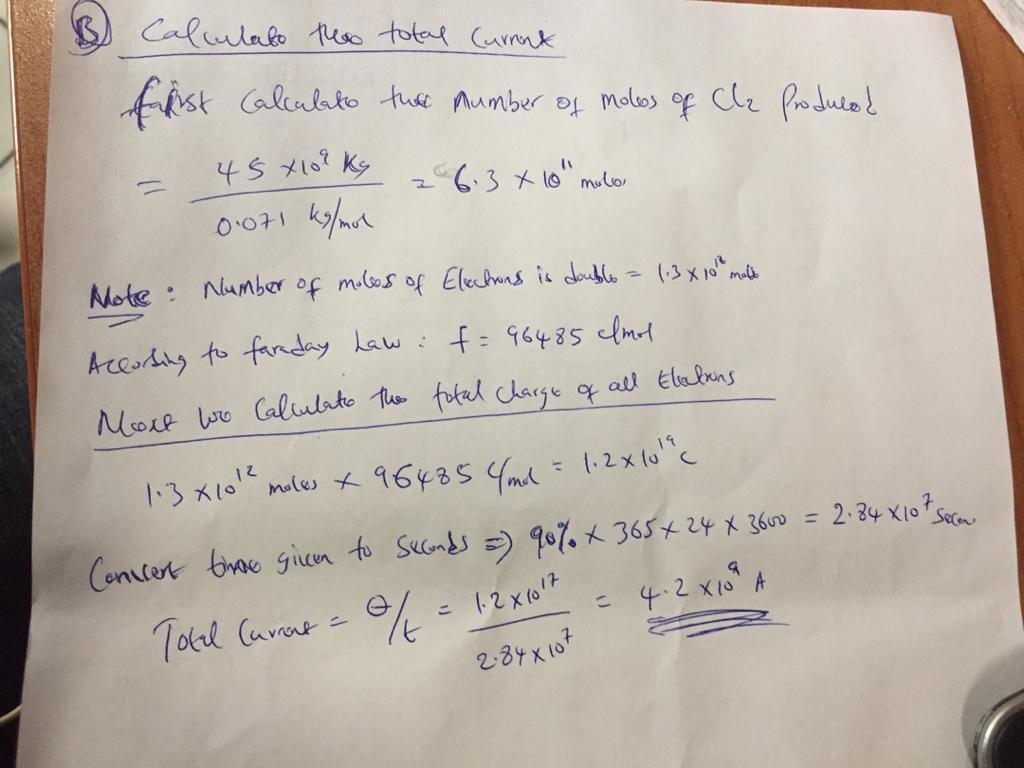 B Calculate the total current
first Calculate the number of moles of Cl2 Produced
= 45 x10^9 Kg / 0.071 kg/mol = 6.3 x 10^11 moles
Note: Number of moles of Electrons is double = 1.3 x 10^12 moles
According to faraday Law: f = 96485 C/mol
Next we Calculate the total charge of all Electrons
1.3 x10^12 moles x 96485 C/mol = 1.2 x 10^17 C
Convert time given to seconds => 90% x 365 x 24 x 3600 = 2.84 x10^7 Secon
Total Current = Q/t = 1.2 x 10^17 / 2.84 x 10^7 = 4.2 x 10^9 A